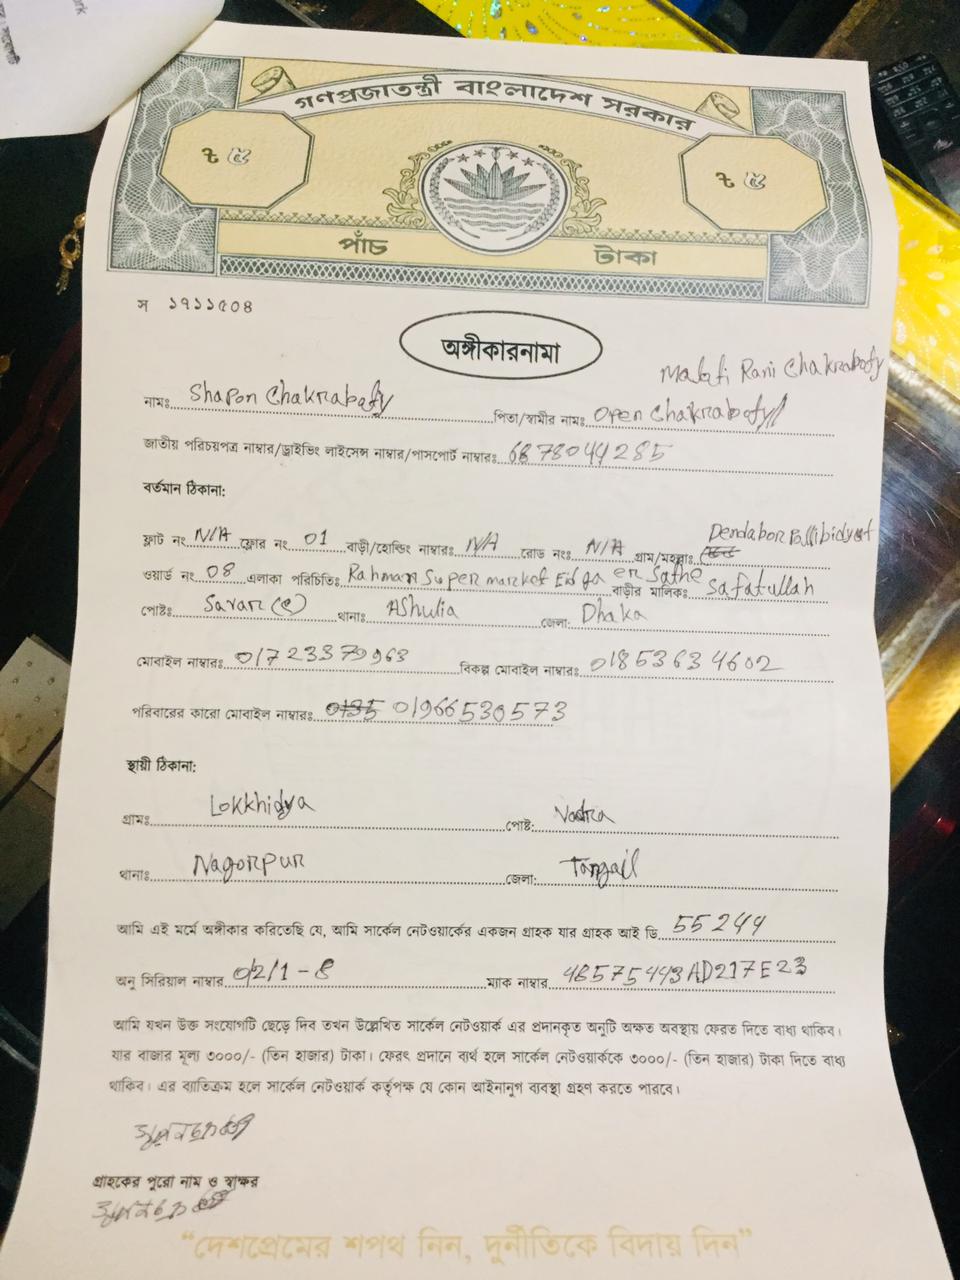 ork
গণপ্রজাতন্ত্রী বাংলাদেশ সরকার
৳ ৫ ৳ ৫
পাঁচ টাকা
স ১৭১১৫০৪
অঙ্গীকারনামা
Malati Rani Chakrabaty
নামঃ Shapon Chakrabaty পিতা/স্বামীর নামঃ Open Chakrabaty
জাতীয় পরিচয়পত্র নাম্বার/ড্রাইভিং লাইসেন্স নাম্বার/পাসপোর্ট নাম্বারঃ 6878044285
বর্তমান ঠিকানা:
ফ্লাট নং N/A ফ্লোর নং 01 বাড়ী/হোল্ডিং নাম্বারঃ N/A রোড নংঃ N/A গ্রাম/মহল্লাঃ Dendabor Pallibidyut
ওয়ার্ড নং 08 এলাকা পরিচিতিঃ Rahman Super market Eidga er Sathe বাড়ীর মালিকঃ Safatullah
পোষ্টঃ Savar (e) থানাঃ Ashulia জেলা: Dhaka
মোবাইল নাম্বারঃ 01723379963 বিকল্প মোবাইল নাম্বারঃ 01853634602
পরিবারের কারো মোবাইল নাম্বারঃ 01966530573
স্থায়ী ঠিকানা:
গ্রামঃ Lokkhidya পোষ্ট:
থানাঃ Nagorpur জেলা: Tangail
আমি এই মর্মে অঙ্গীকার করিতেছি যে, আমি সার্কেল নেটওয়ার্কের একজন গ্রাহক যার গ্রাহক আই ডি 55244
অনু সিরিয়াল নাম্বার 0/2/1-8 ম্যাক নাম্বার 48575443AD217E23
আমি যখন উক্ত সংযোগটি ছেড়ে দিব তখন উল্লেখিত সার্কেল নেটওয়ার্ক এর প্রদানকৃত অনুটি অক্ষত অবস্থায় ফেরত দিতে বাধ্য থাকিব।
যার বাজার মূল্য ৩০০০/- (তিন হাজার) টাকা। ফেরৎ প্রদানে ব্যর্থ হলে সার্কেল নেটওয়ার্ককে ৩০০০/- (তিন হাজার) টাকা দিতে বাধ্য
থাকিব। এর ব্যতিক্রম হলে সার্কেল নেটওয়ার্ক কর্তৃপক্ষ যে কোন আইনানুগ ব্যবস্থা গ্রহণ করতে পারবে।
গ্রাহকের পুরো নাম ও স্বাক্ষর
“দেশপ্রেমের শপথ নিন, দুর্নীতিকে বিদায় দিন”